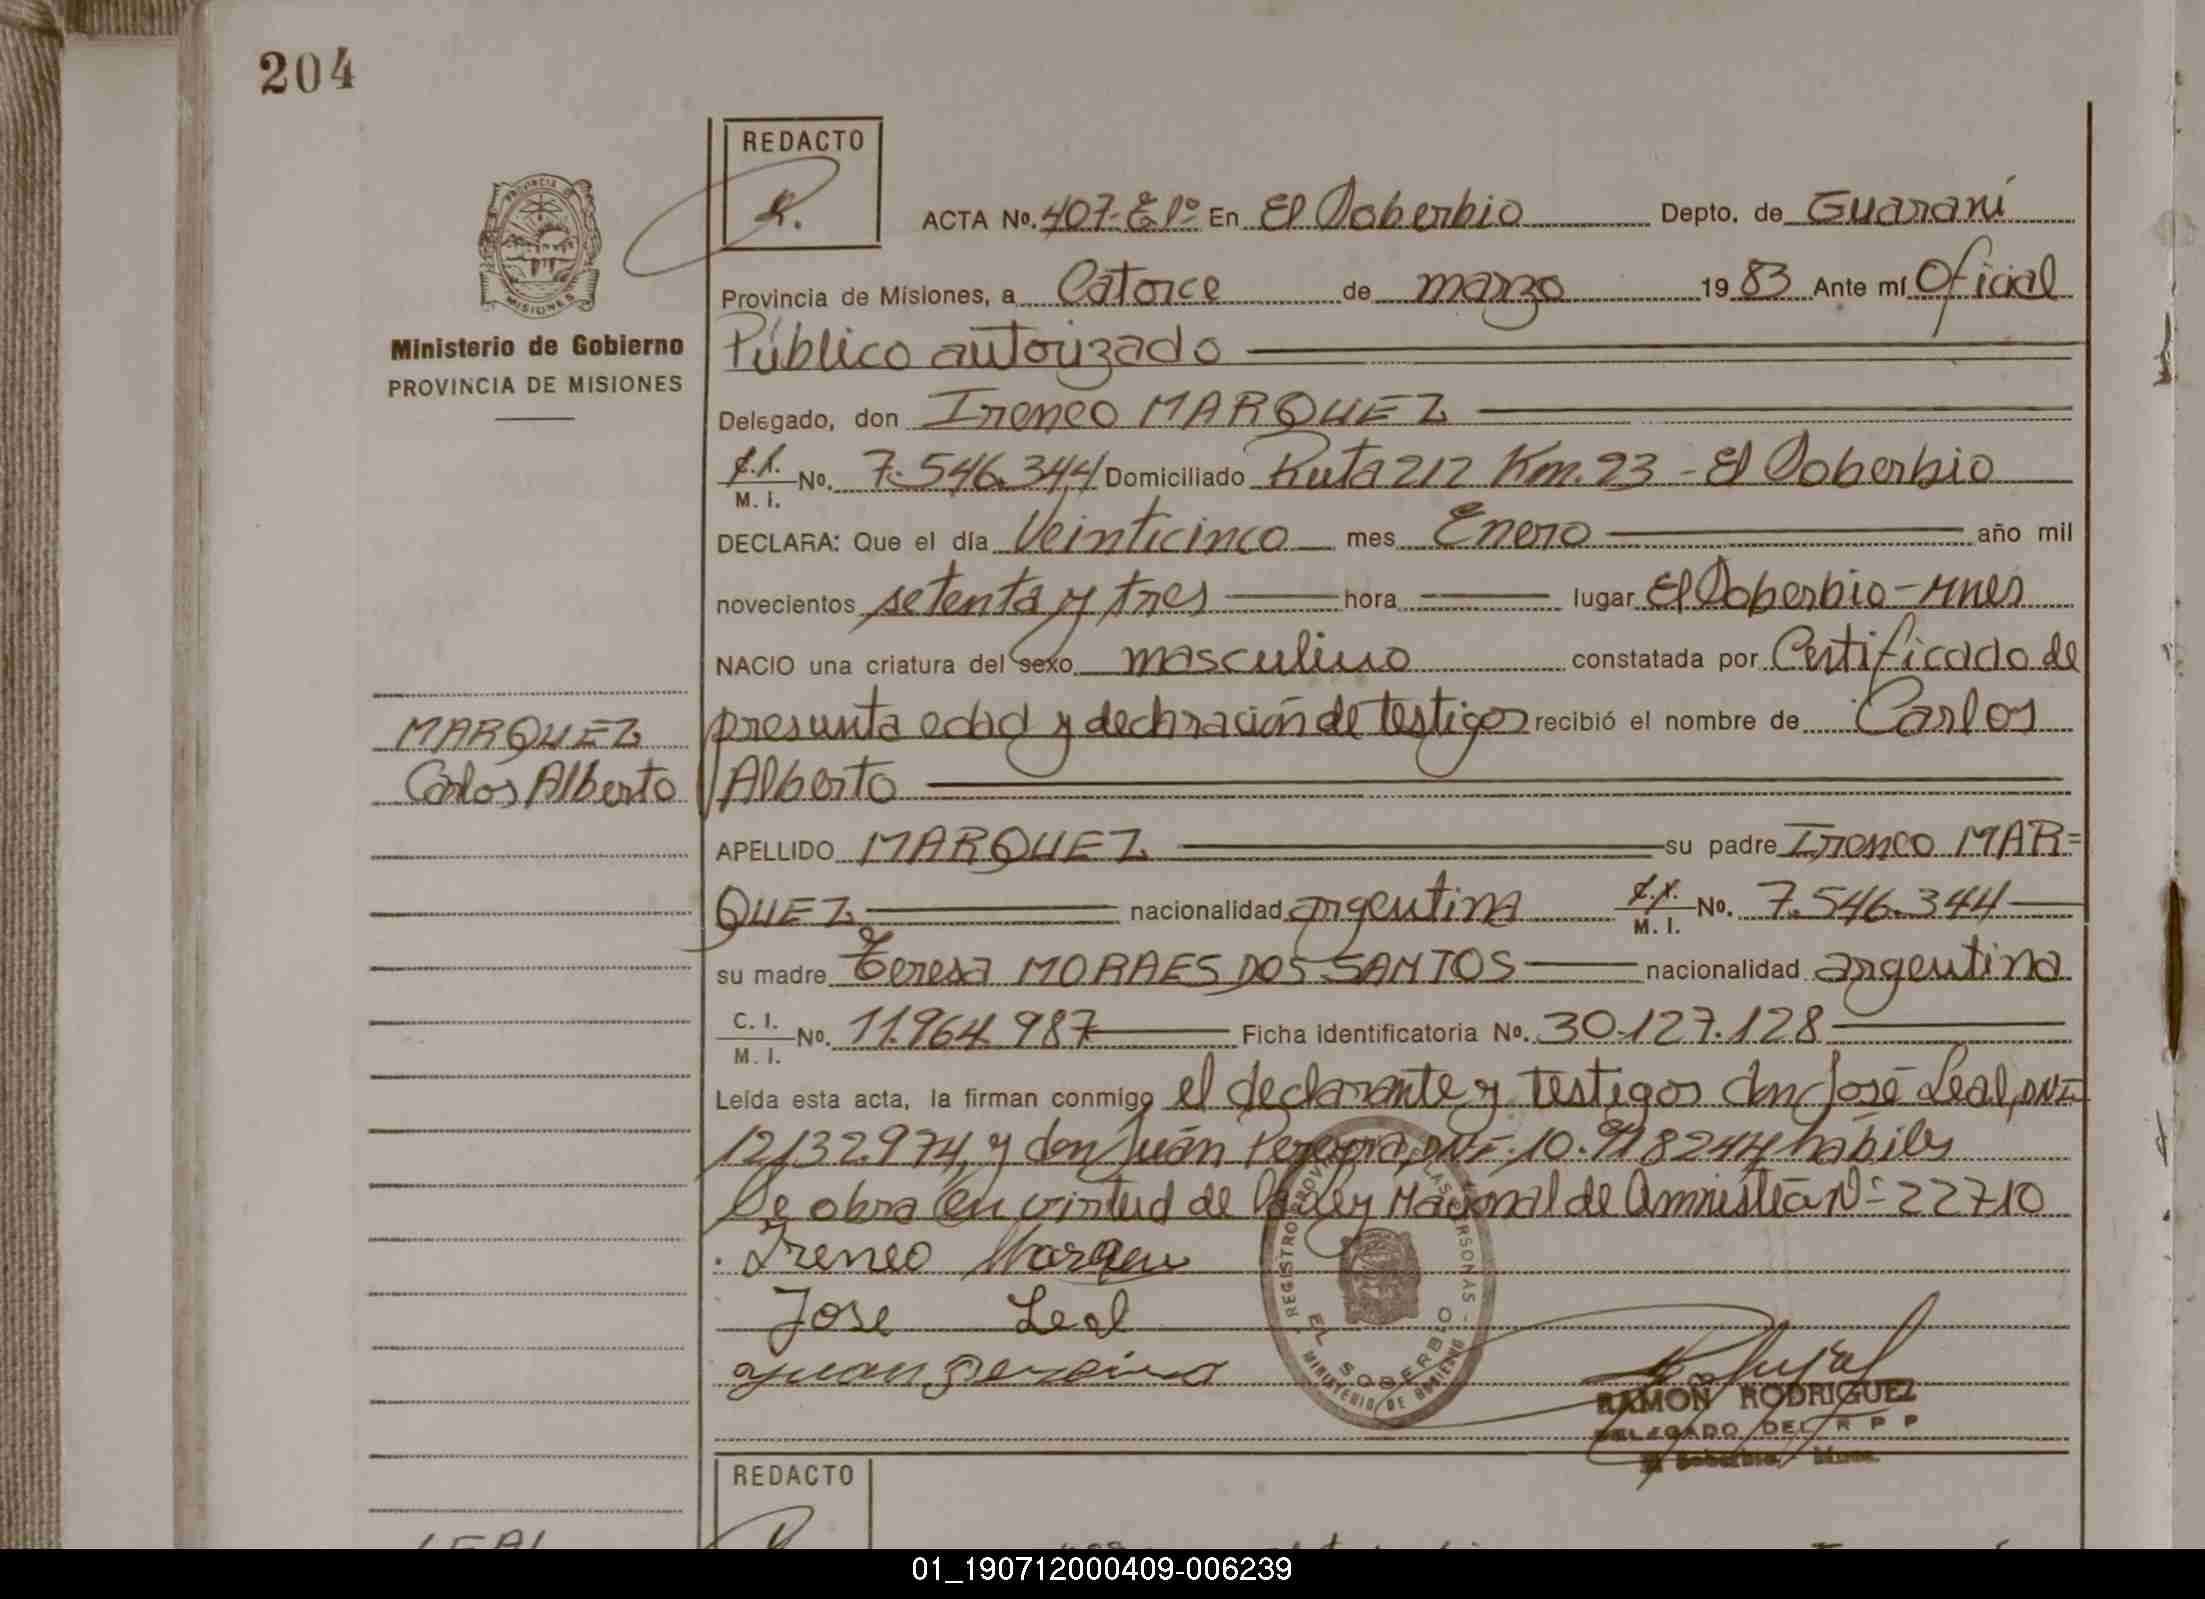 204
REDACTO
ACTA No. 407-E1º En El Soberbio Depto. de Guaraní
Provincia de Misiones, a Catorce de marzo 1983 Ante mí Oficial
Público autorizado
Delegado, don Ireneo MARQUEZ
C.I. M. I. No. 7.546.344 Domiciliado Ruta 212 Km. 23 - El Soberbio
DECLARA: Que el día Veinticinco mes Enero año mil
novecientos setenta y tres hora lugar El Soberbio-Mnes
NACIO una criatura del sexo masculino constatada por Certificado de
presunta edad y declaración de testigos recibió el nombre de Carlos
Alberto
APELLIDO MARQUEZ su padre Ireneo MAR=
QUEZ nacionalidad argentina C.I. M. I. No. 7.546.344
su madre Teresa MORAES DOS SANTOS nacionalidad argentina
C. I. M. I. No. 11.964.987 Ficha identificatoria No. 30.127.128
Leída esta acta, la firman conmigo el declarante y testigos don José Leal, DNI
12.132.974, y don Juán Pereyra, DNI-10.918244 hábiles
Se obra en virtud de la Ley Nacional de Amnistía Nº 22710
Ireneo Marquez
Jose Leal
Juan Pereira
REGISTRO PROVINCIAL DE LAS PERSONAS
EL SOBERBIO
MINISTERIO DE GOBIERNO
RAMON RODRIGUEZ
DELEGADO DEL R P P
El Soberbio - Mnes.
PROVINCIA DE
MISIONES
Ministerio de Gobierno
PROVINCIA DE MISIONES
MARQUEZ
Carlos Alberto
REDACTO
LEAL
01_190712000409-006239